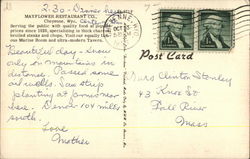 2-30-
MAYFLOWER RESTAURANT CO.
Cheyenne, Wyo.
Serving the public with quality food at popular
prices since 1925, specializing in thick char-
broiled steaks and chops. Visit our equally
our Marine Room and ultra-modern Tavern.
Post Card
Beautiful day - snow
only on mountains in
distance. Passed some
oil wells. Saw strip
planting at
Denver 104 miles
south.
Love
Mother
Mrs Clinton Stanley
43 Knox St
Fall River
Mass